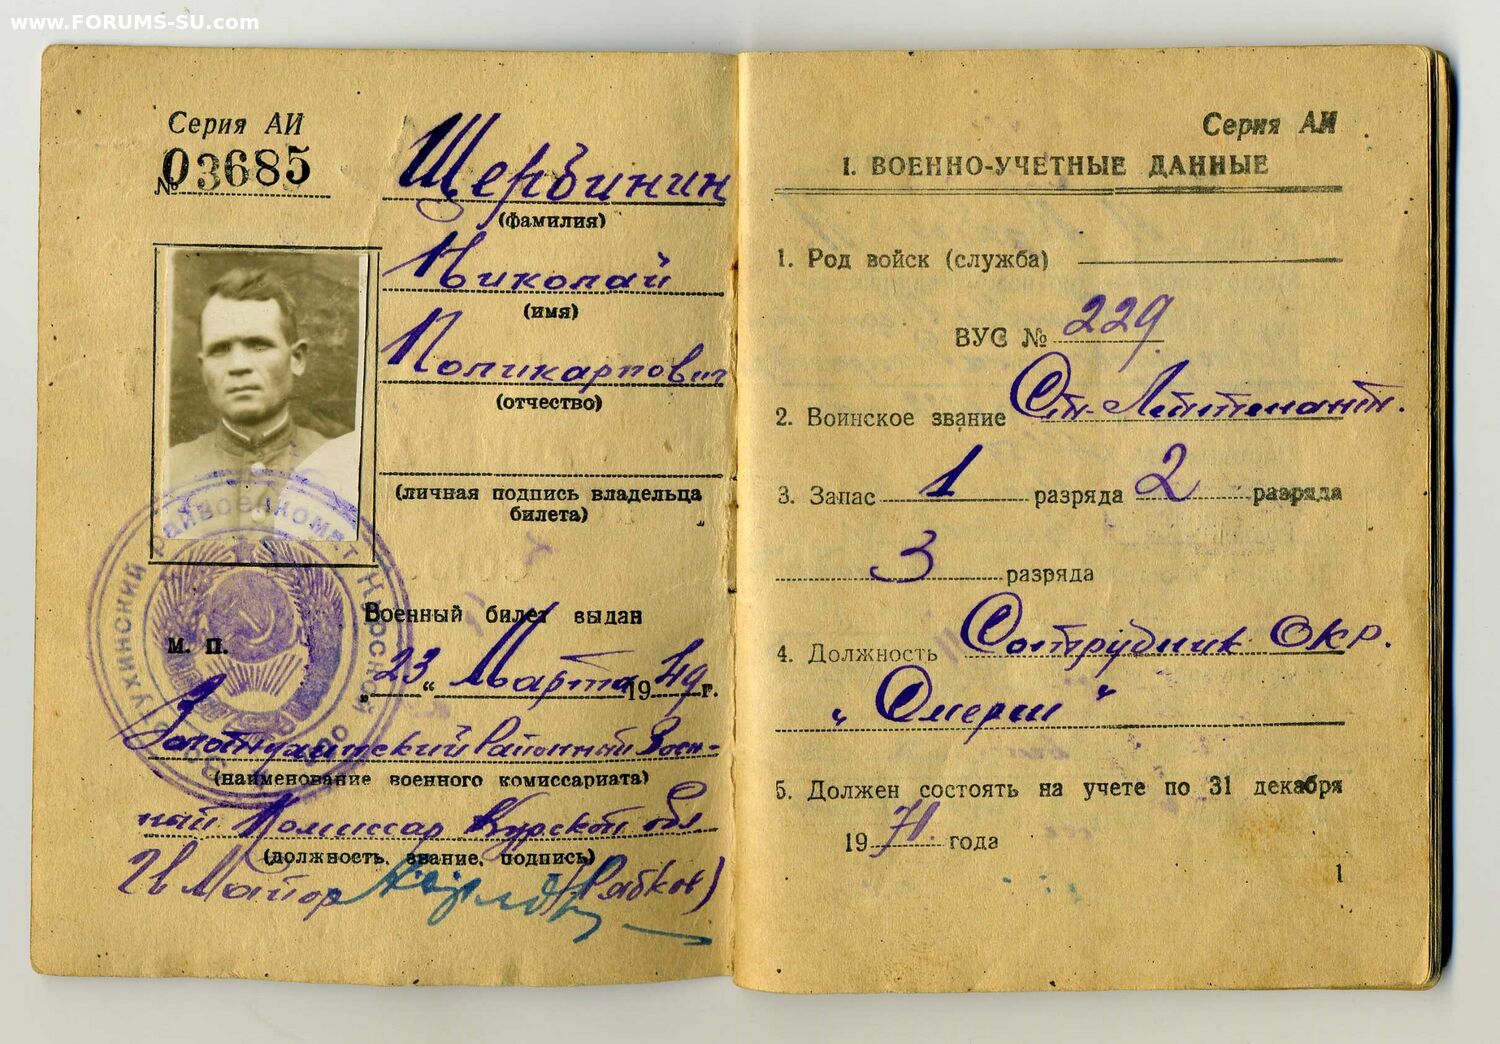 www.FORUMS-SU.com
Серия АИ
№ 03685
Щербинин
(фамилия)
Николай
(имя)
Поликарпович
(отчество)
(личная подпись владельца
билета)
Военный билет выдан
М. П.
„23“ Марта 1949 г.
Золотухинский Районный Воен-
(наименование военного комиссариата)
ный Комиссар Курской обл
(должность, звание, подпись)
Гв Майор (Рябков)
Золотухинский райвоенкомат Курской обл
Серия АИ
I. ВОЕННО-УЧЕТНЫЕ ДАННЫЕ
1. Род войск (служба)
ВУС № 229.
2. Воинское звание Ст. Лейтенант.
3. Запас 1 разряда 2 разряда
3 разряда
4. Должность Сотрудник Окр.
„Смерш"
5. Должен состоять на учете по 31 декабря
1971. года
1